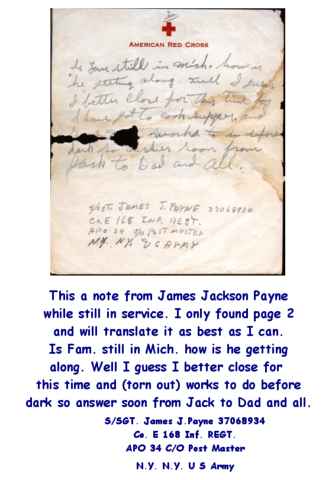 American Red Cross
Is Fam still in Mich. how is
he getting along. Well I guess
I better close for this time
I have got to cook supper, and
works to do before
dark so answer soon from
Jack to Dad and All.
S/SGT. JAMES J. PAYNE 37068934
Co. E 168 INF. REGT.
APO 34 C/O POST MASTER
N.Y. N.Y. U S ARMY
This a note from James Jackson Payne
while still in service. I only found page 2
and will translate it as best as I can.
Is Fam. still in Mich. how is he getting
along. Well I guess I better close for
this time and (torn out) works to do before
dark so answer soon from Jack to Dad and all.
S/SGT. James J.Payne 37068934
Co. E 168 Inf. REGT.
APO 34 C/O Post Master
N.Y. N.Y. U S Army